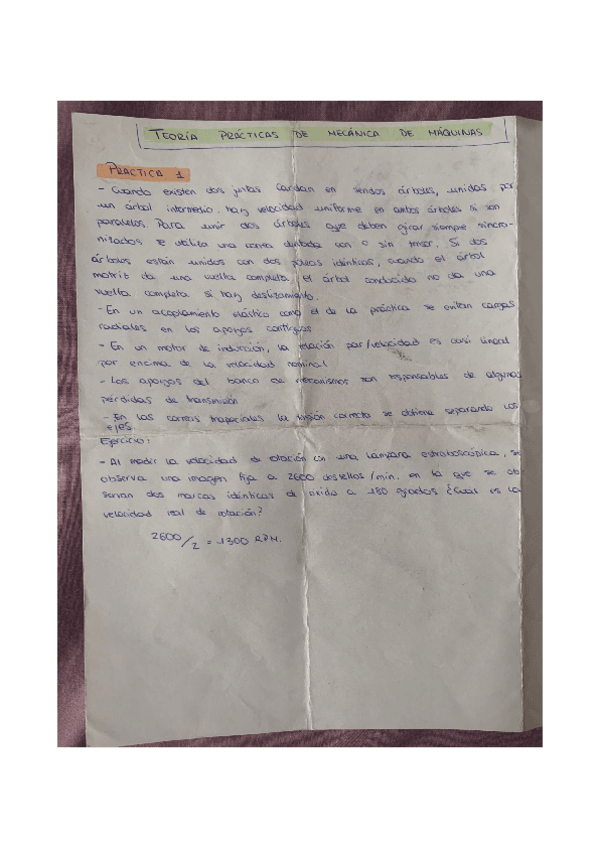 TEORÍA PRÁCTICAS DE MECÁNICA DE MÁQUINAS
PRACTICA 1
- Cuando existen dos juntas Cardan en sendos árboles, unidas por
un árbol intermedio hay velocidad uniforme en ambos árboles si son
paralelos. Para unir dos árboles que deben girar siempre sincro-
nizados se utiliza una correa dentada con o sin tensor. Si dos
árboles están unidos con dos poleas idénticas, cuando el árbol
motriz da una vuelta completa, el árbol conducido no da una
vuelta completa si hay deslizamiento.
- En un acoplamiento elástico como el de la práctica se evitan cargas
radiales en los apoyos contiguos
- En un motor de inducción, la relación par/velocidad es casi lineal
por encima de la velocidad nominal
- Los apoyos del banco de mecanismos son responsables de algunas
pérdidas de transmisión
- En las correas trapeciales la tensión correcta se obtiene separando los
ejes.
Ejercicio:
- Al medir la velocidad de rotación con una lámpara estroboscópica, se
observa una imagen fija a 2600 destellos/min. en la que se ob-
servan dos marcas idénticas de óxido a 180 grados ¿Cual es la
velocidad real de rotación?
2600/2 = 1300 RPM.